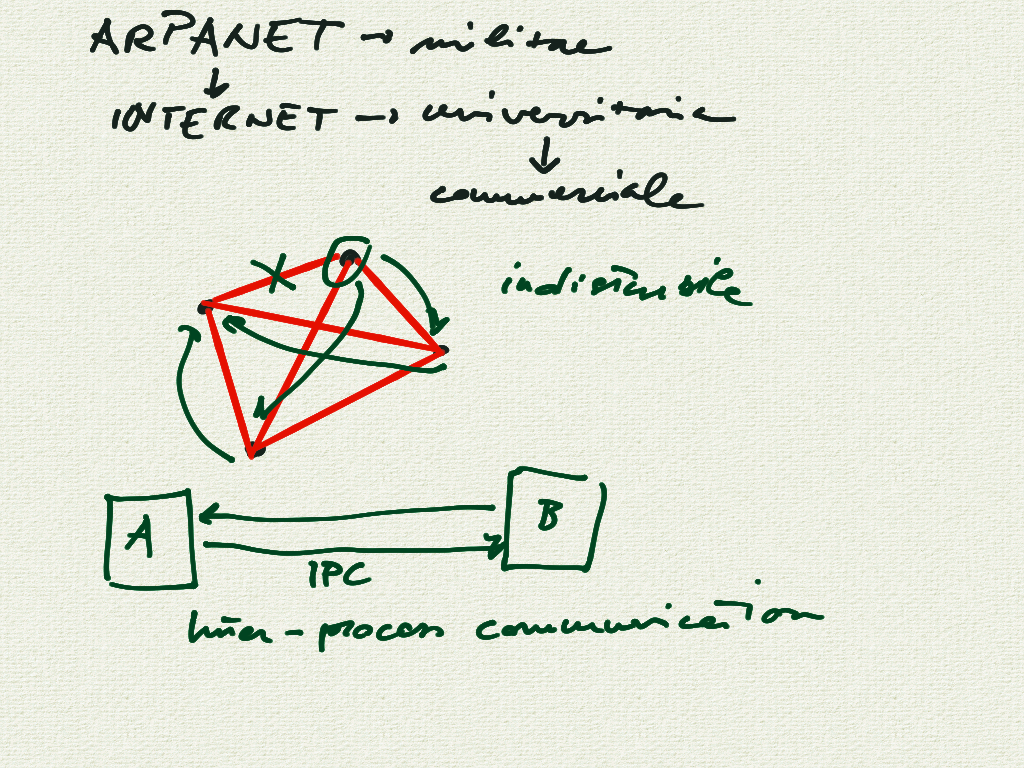 ARPANET → militare
↓
INTERNET → universitaria
↓
commerciale
indistruttibile
A
B
IPC
Inter-process communication